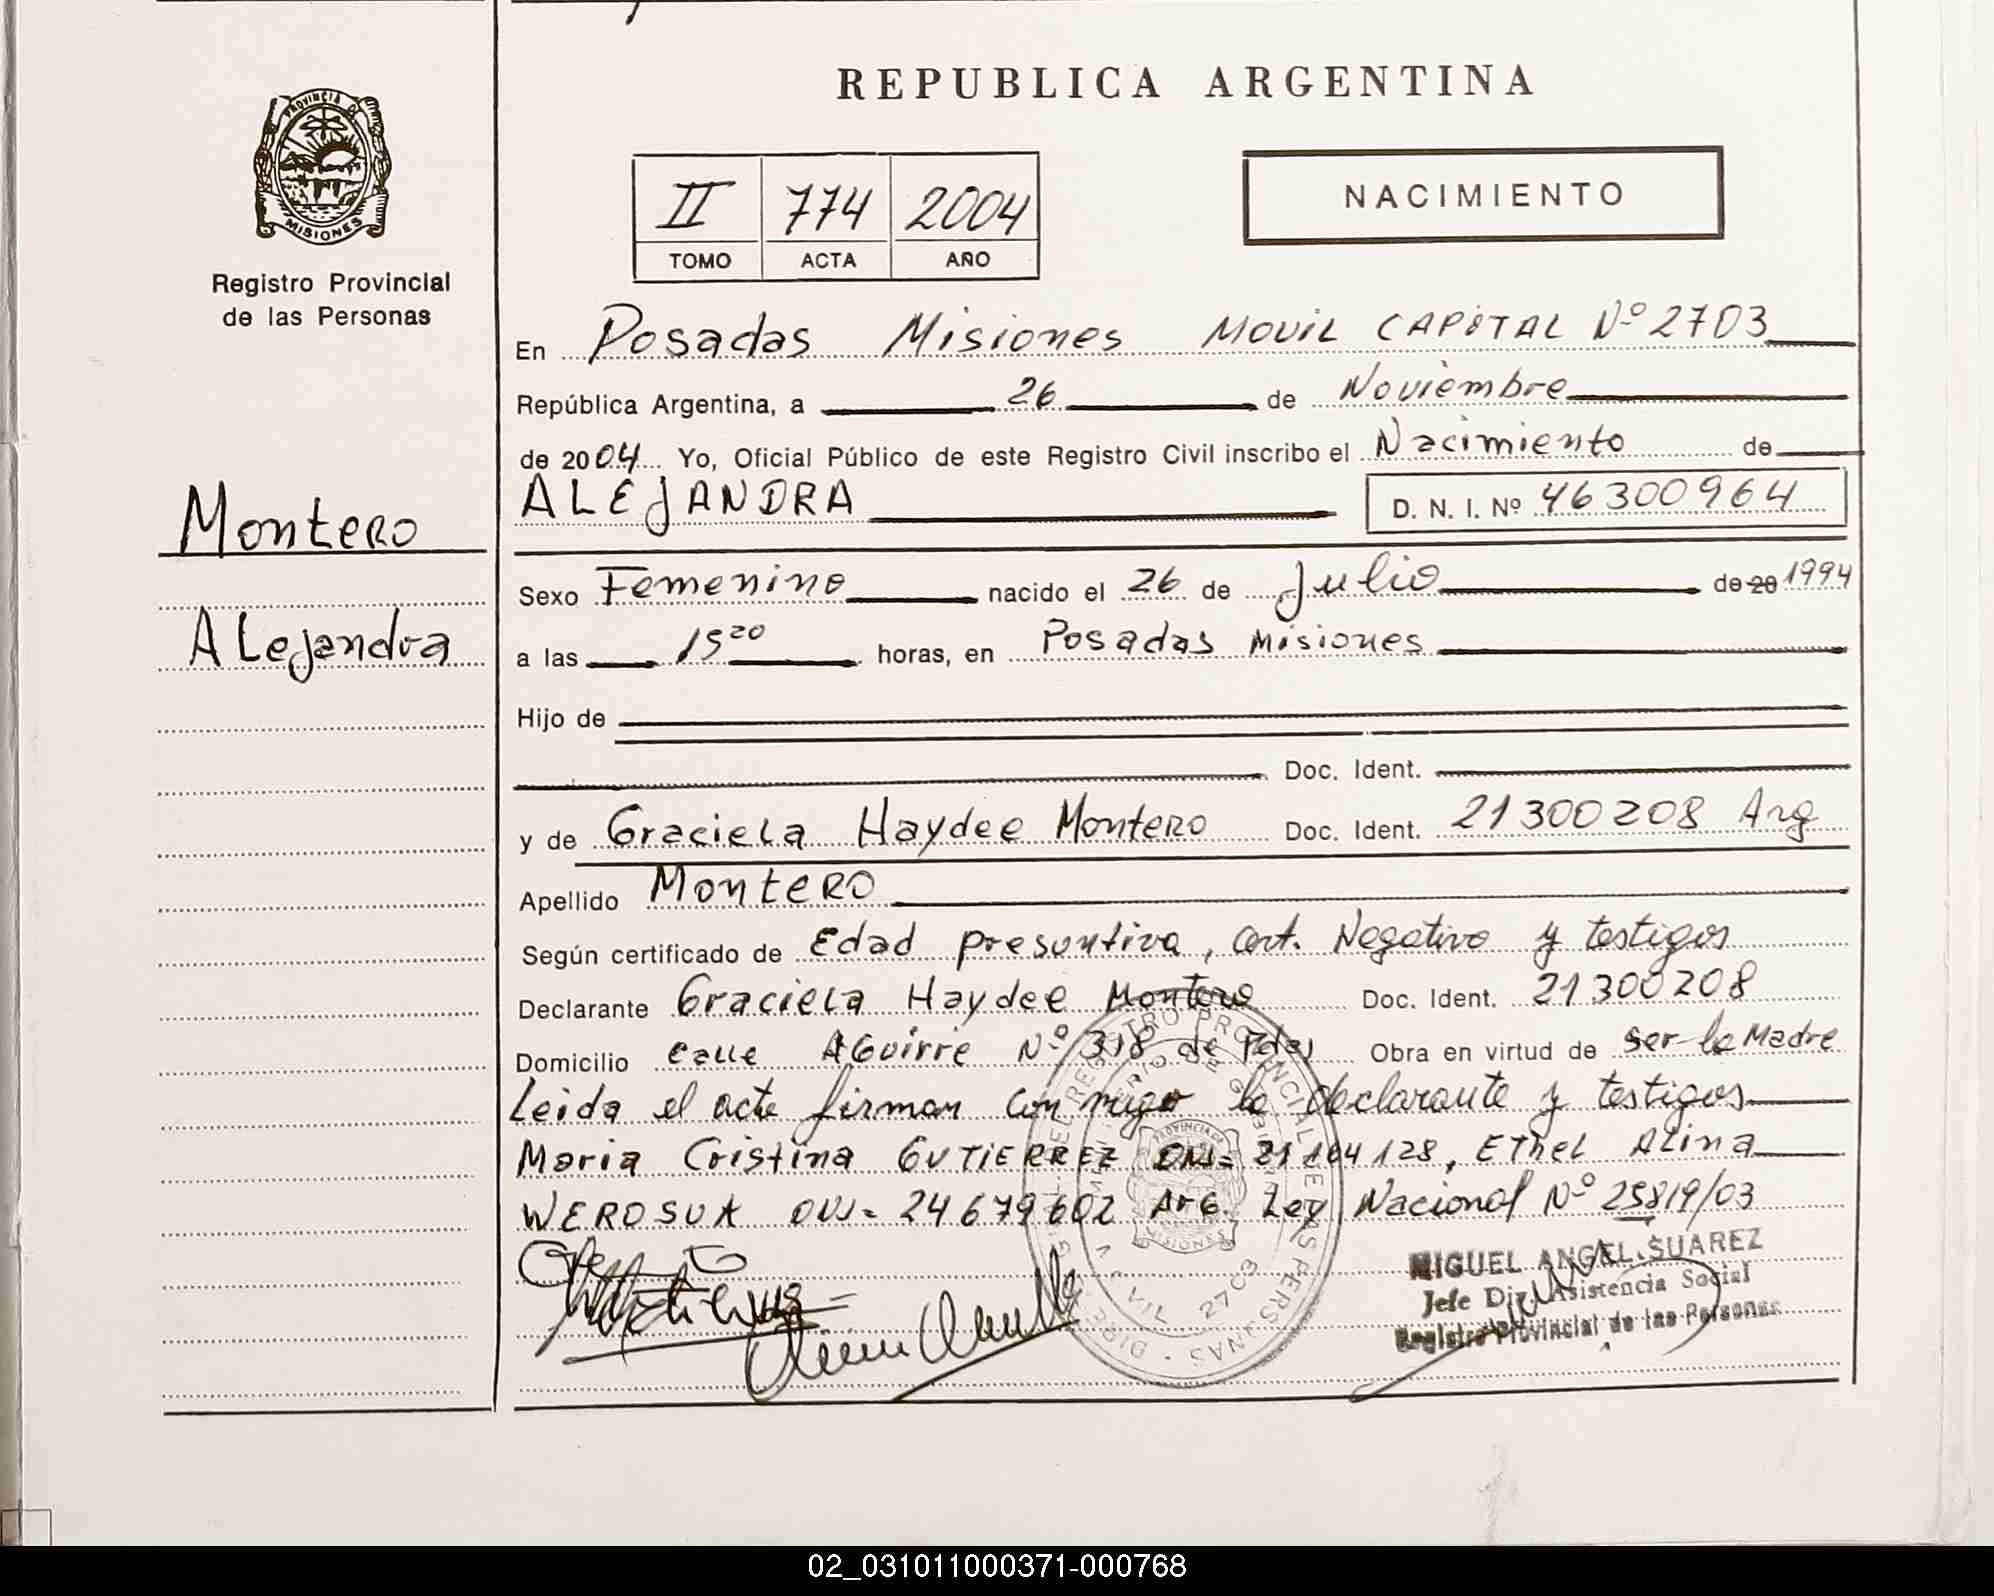 REPUBLICA ARGENTINA
PROVINCIA DE
MISIONES
Registro Provincial
de las Personas
II 774 2004
TOMO ACTA AÑO
NACIMIENTO
En Posadas Misiones MOVIL CAPITAL Nº 2703
República Argentina, a 26 de Noviembre
de 2004 Yo, Oficial Público de este Registro Civil inscribo el Nacimiento de
ALEJANDRA D. N. I. Nº 46300964
Montero
Sexo Femenino nacido el 26 de Julio de 20 1994
Alejandra
a las 15 20 horas, en Posadas Misiones
Hijo de
Doc. Ident.
y de Graciela Haydee Montero Doc. Ident. 21300208 Arg
Apellido Montero
Según certificado de Edad presuntiva, cert. Negativo y testigos
Declarante Graciela Haydee Montero Doc. Ident. 21300208
Domicilio calle Aguirre Nº 318 de Pdas Obra en virtud de ser la Madre
Leida el acta firman conmigo la declarante y testigos
Maria Cristina GUTIERREZ DNI= 21164128, Ethel Alina
WEROSUK DNI= 24679602 Arg. Ley Nacional Nº 25819/03
MIGUEL ANGEL SUAREZ
Jefe Div. Asistencia Social
Registro Provincial de las Personas
02_031011000371-000768